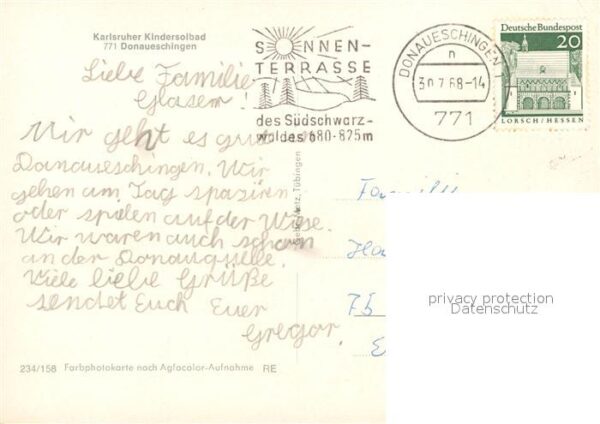 Karlsruher Kindersolbad
771 Donaueschingen
Liebe Familie
Glaser!
Mir geht es gut in
Donaueschingen. Wir
gehen am Tag spaziren
oder spielen auf der Wiese.
Wir waren auch schon
an der Donauquelle.
Viele liebe Grüße
sendet Euch Euer
Gregor.
234/158 Farbphotokarte nach Agfacolor-Aufnahme RE
Metz, Tübingen
SONNEN-
TERRASSE
des Südschwarz-
waldes 680-825m
DONAUESCHINGEN 1
n
30.7.68-14
771
Deutsche Bundespost
20
LORSCH/HESSEN
Familie
75
privacy protection
Datenschutz